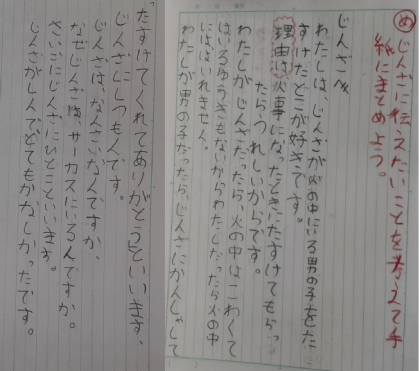 め じんざに伝えたいことを考えて手
紙にまとめよう。
じんざ
わたしは、じんざが火の中にいる男の子をた
すけたとこが好きです。
理由は火事になったときにたすけてもらっ
たらうれしいからです。
わたしがじんざだったら、火の中はこわくて
はいるゆうきもないからわたしだったら火の中
にははいれません。
わたしが男の子だったら、じんざにかんしゃして
「たすけてくれてありがとう」といいます、
じんざにしつもんです。
じんざは、なんさいなんですか、
なぜじんざは、サーカスにいるんですか。
さいごにじんざにひとこといいます。
じんざがしんで、とてもかなしかったです。